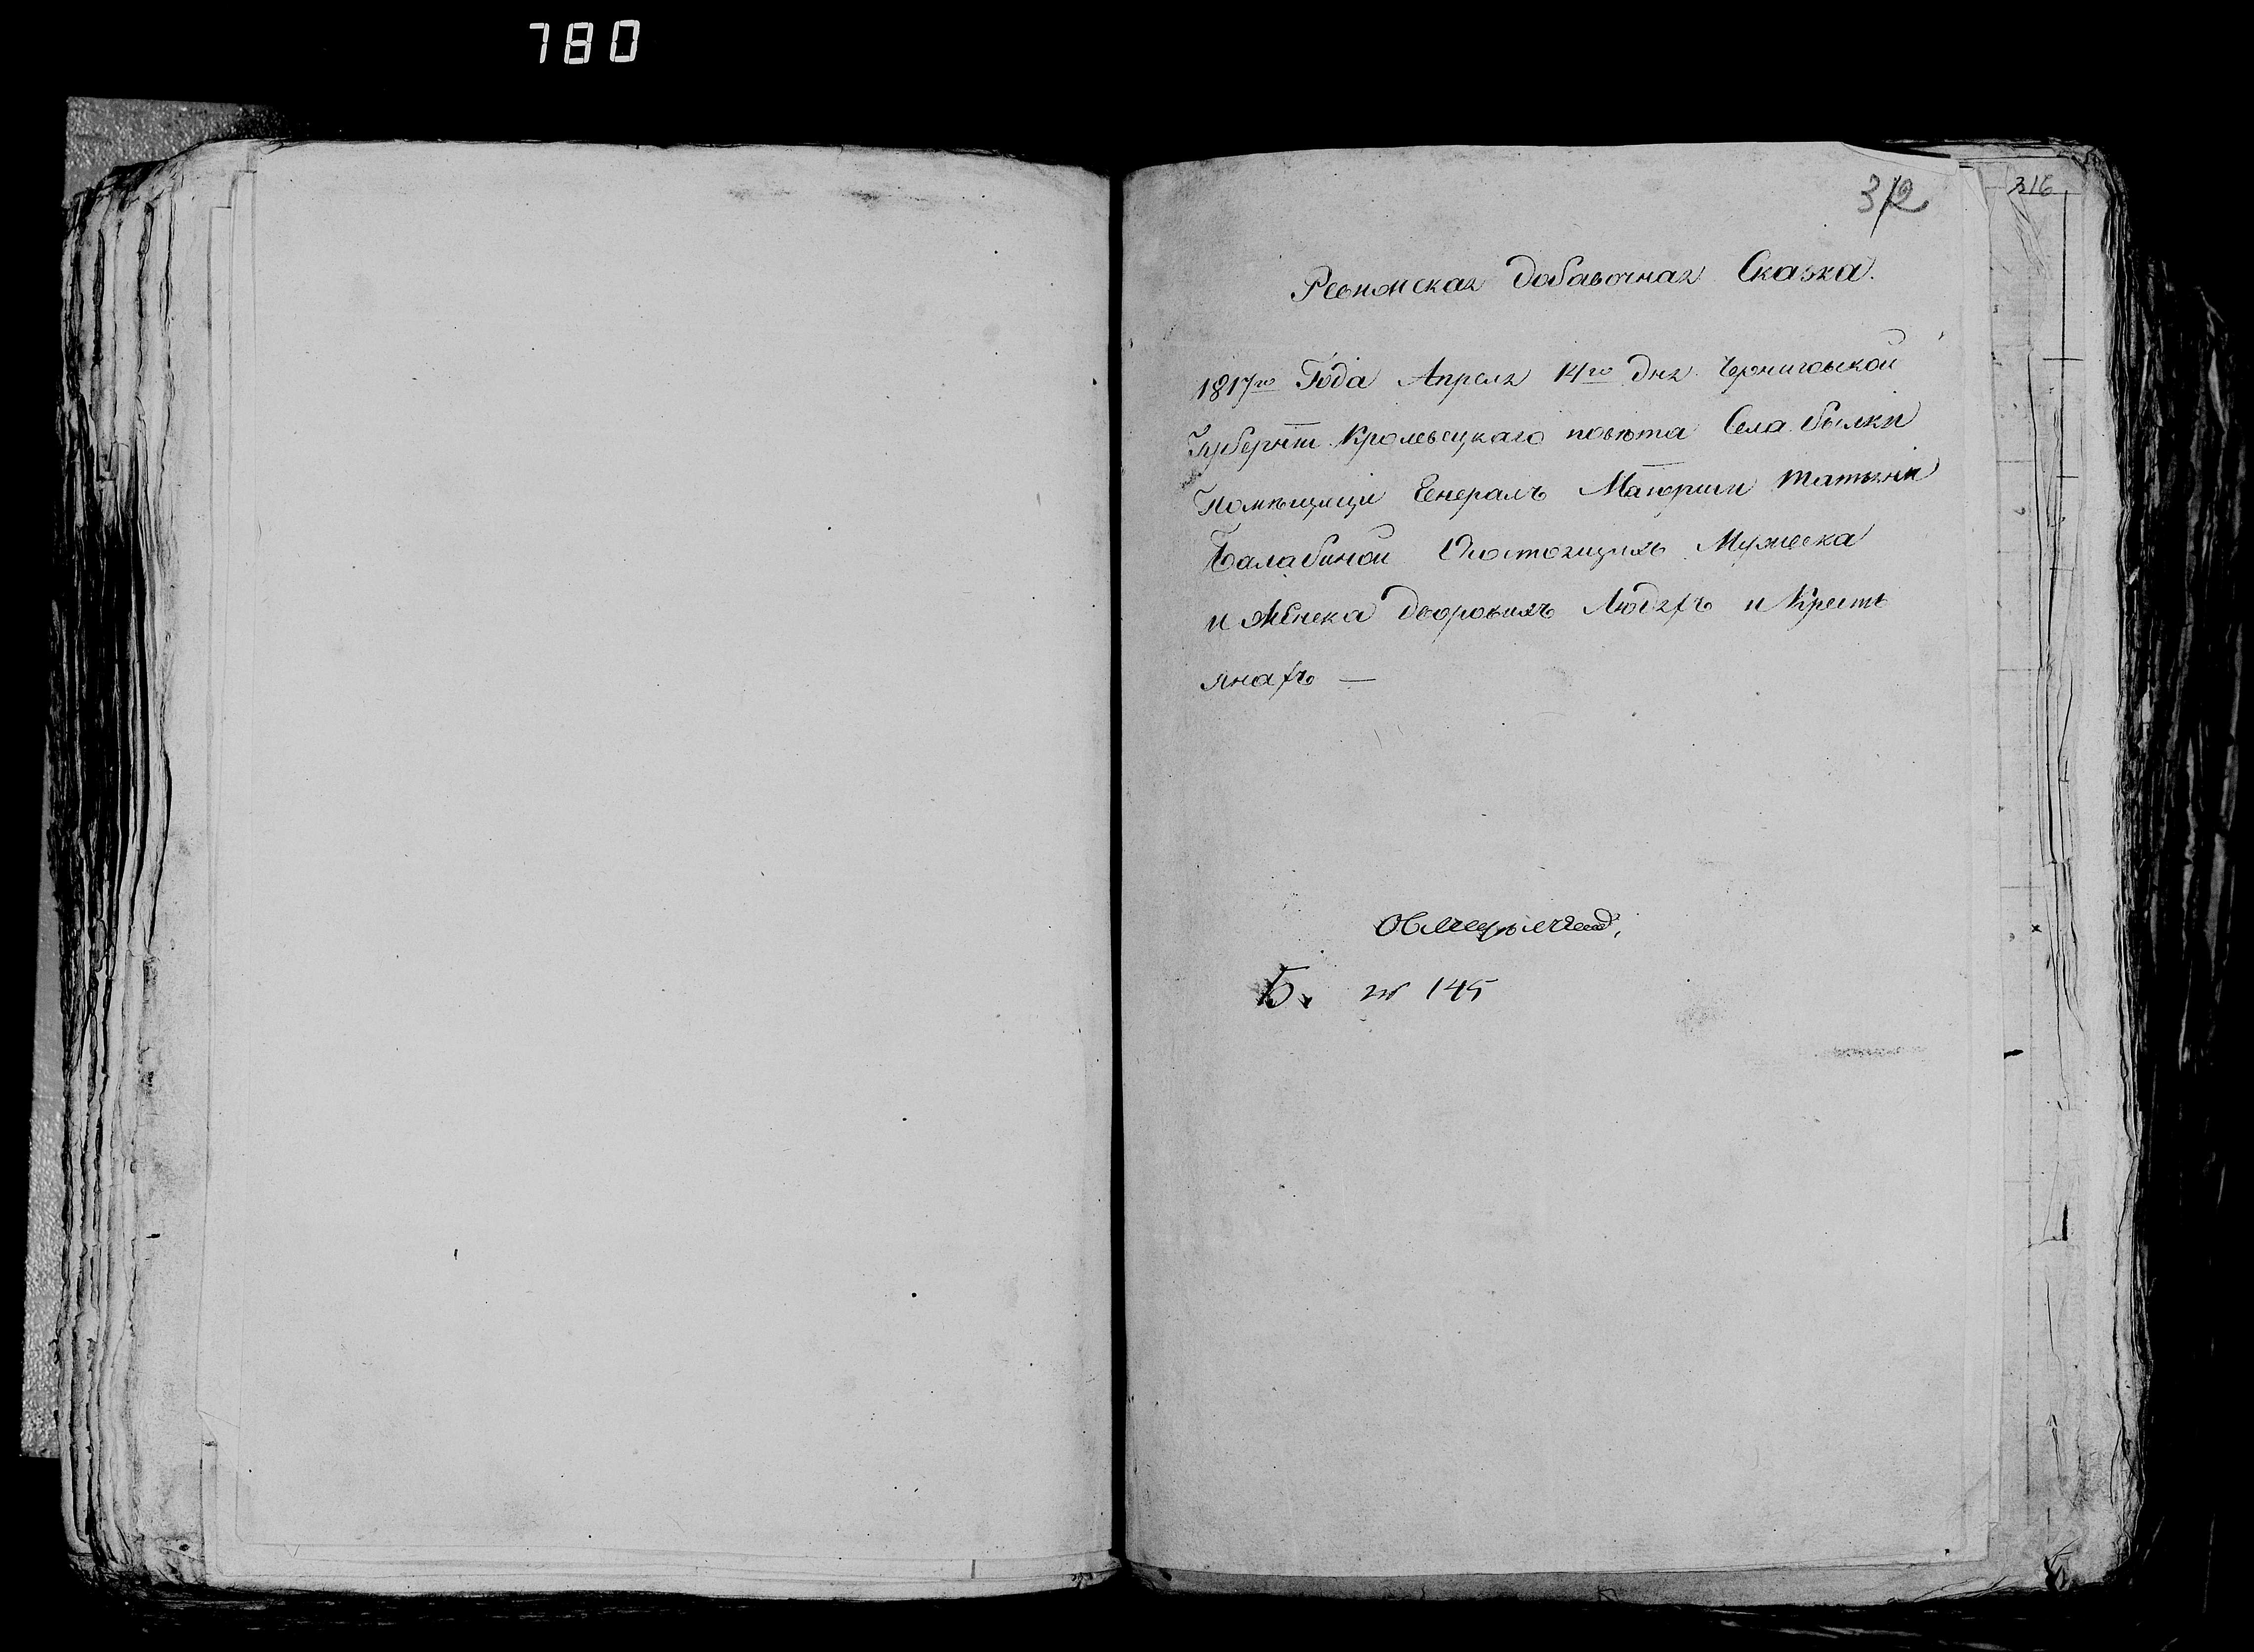 780
312
316
Ревижская добавочная Сказка.
1817го Года Апреля 14го дня Черниговской
Губернїи Кролевецкаго повѣта Села былки
Помѣщици Генералъ Маіорши татьяни
Балабиной Состоящихъ Мужеска
и Женска дворовихъ Людяхъ и Кресть
янахъ —
Б. № 145